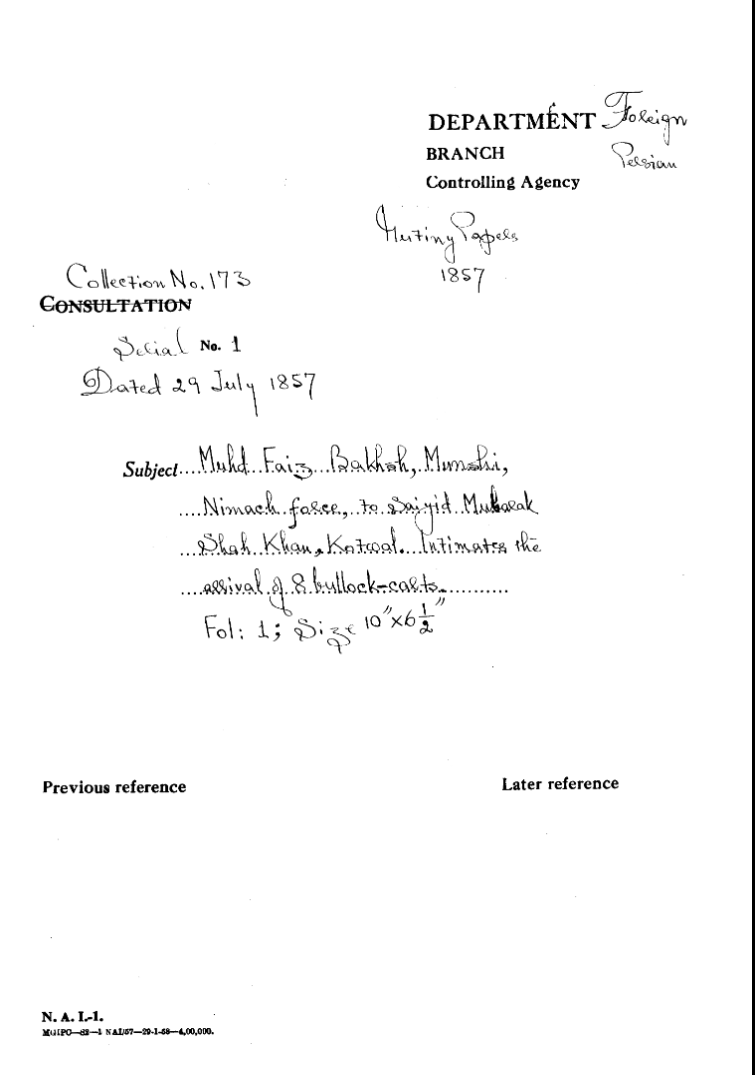 DEPARTMENT Foreign
BRANCH Persian
Controlling Agency
Mutiny Papers
1857
Collection No. 173
CONSULTATION
Serial No. 1
Dated 29 July 1857
Subject....Muhd. Faiz Bakhsh, Munshi,
....Nimach force, to Saiyid Mubarak
...Shah Khan, Kotwal. Intimates the
....arrival of 8 bullock-carts...........
Fol: 1; Size 10"x6 1/2"
Previous reference Later reference
N. A. I.-1.
MGIPC—S2—1 NAI/57—29-1-58—4,00,000.